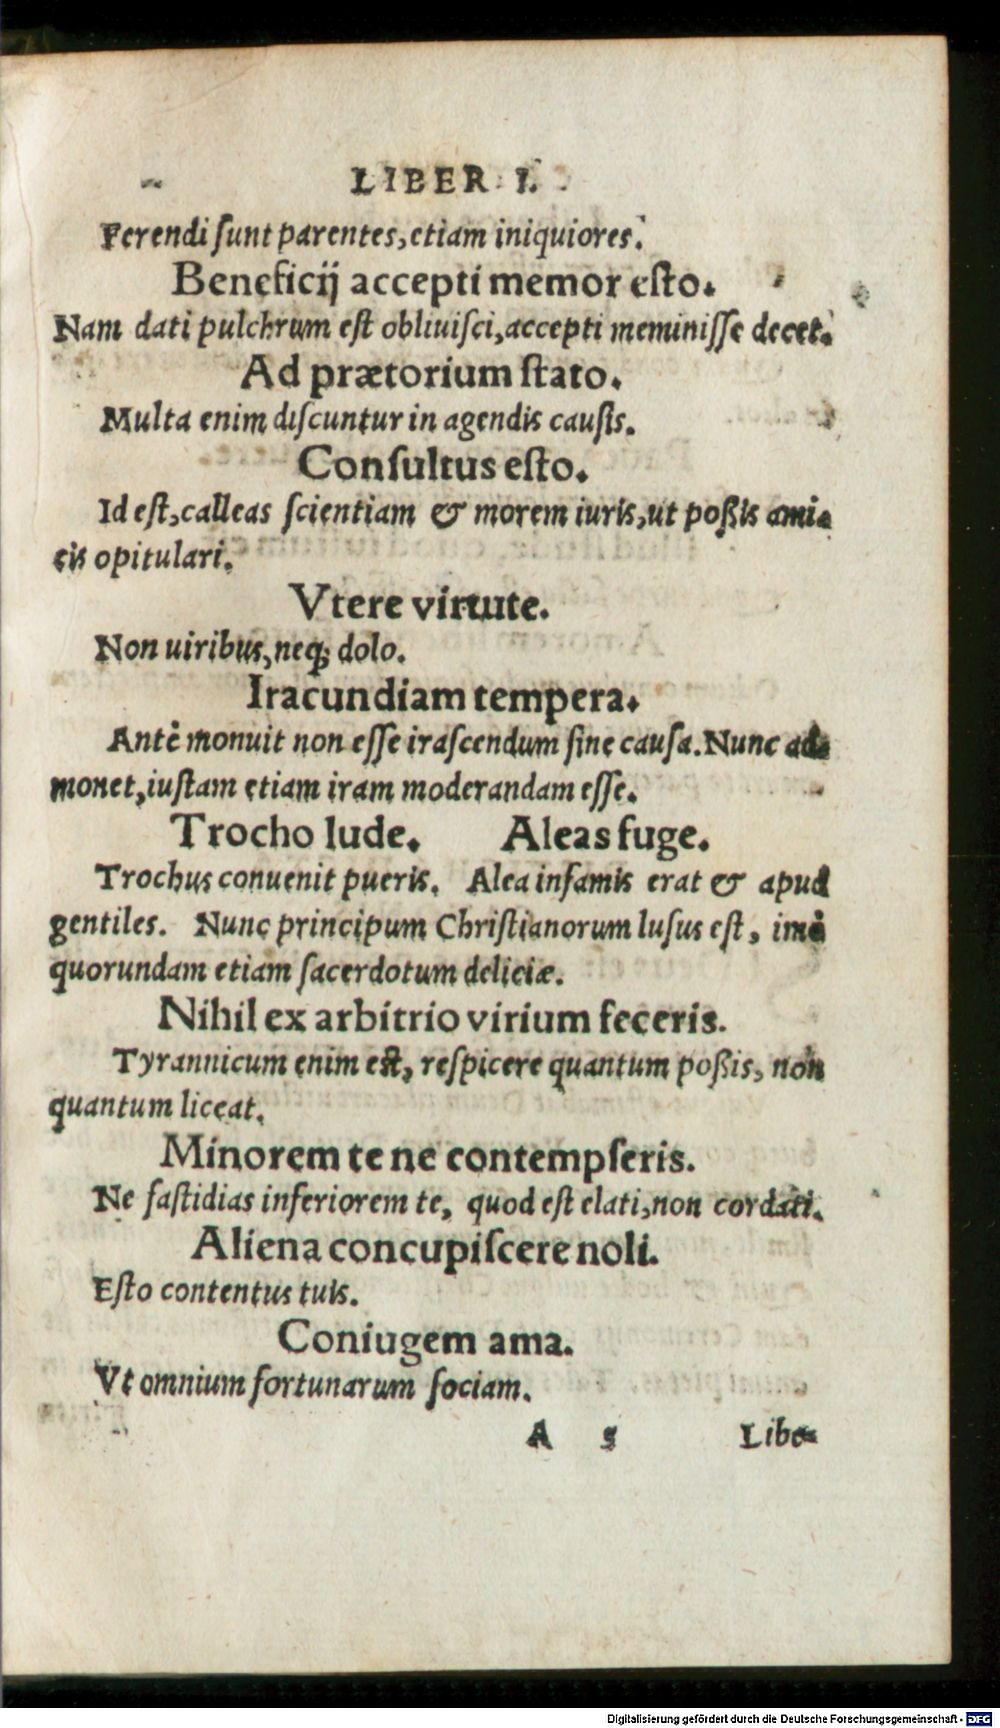 LIBER I.
Ferendi ſunt parentes, etiam iniquiores.
Beneficij accepti memor eſto.
Nam dati pulchrum eſt obliuiſci, accepti meminiſſe decet.
Ad prætorium ſtato.
Multa enim diſcuntur in agendis cauſis.
Conſultus eſto.
Id eſt, calleas ſcientiam & morem iuris, ut poßis ami-
cis opitulari.
Vtere virtute.
Non uiribus, neqꝫ dolo.
Iracundiam tempera.
Antè monuit non eſſe iraſcendum ſine cauſa. Nunc ad-
monet, iuſtam etiam iram moderandam eſſe.
Trocho lude. Aleas fuge.
Trochus conuenit pueris. Alea infamis erat & apud
gentiles. Nunc principum Chriſtianorum luſus eſt, imò
quorundam etiam ſacerdotum deliciæ.
Nihil ex arbitrio virium feceris.
Tyrannicum enim eſt, reſpicere quantum poßis, non
quantum liceat.
Minorem te ne contempſeris.
Ne faſtidias inferiorem te, quod eſt elati, non cordati.
Aliena concupiſcere noli.
Eſto contentus tuis.
Coniugem ama.
Vt omnium fortunarum ſociam.
A 5 Libe-
Digitalisierung gefördert durch die Deutsche Forschungsgemeinschaft - DFG